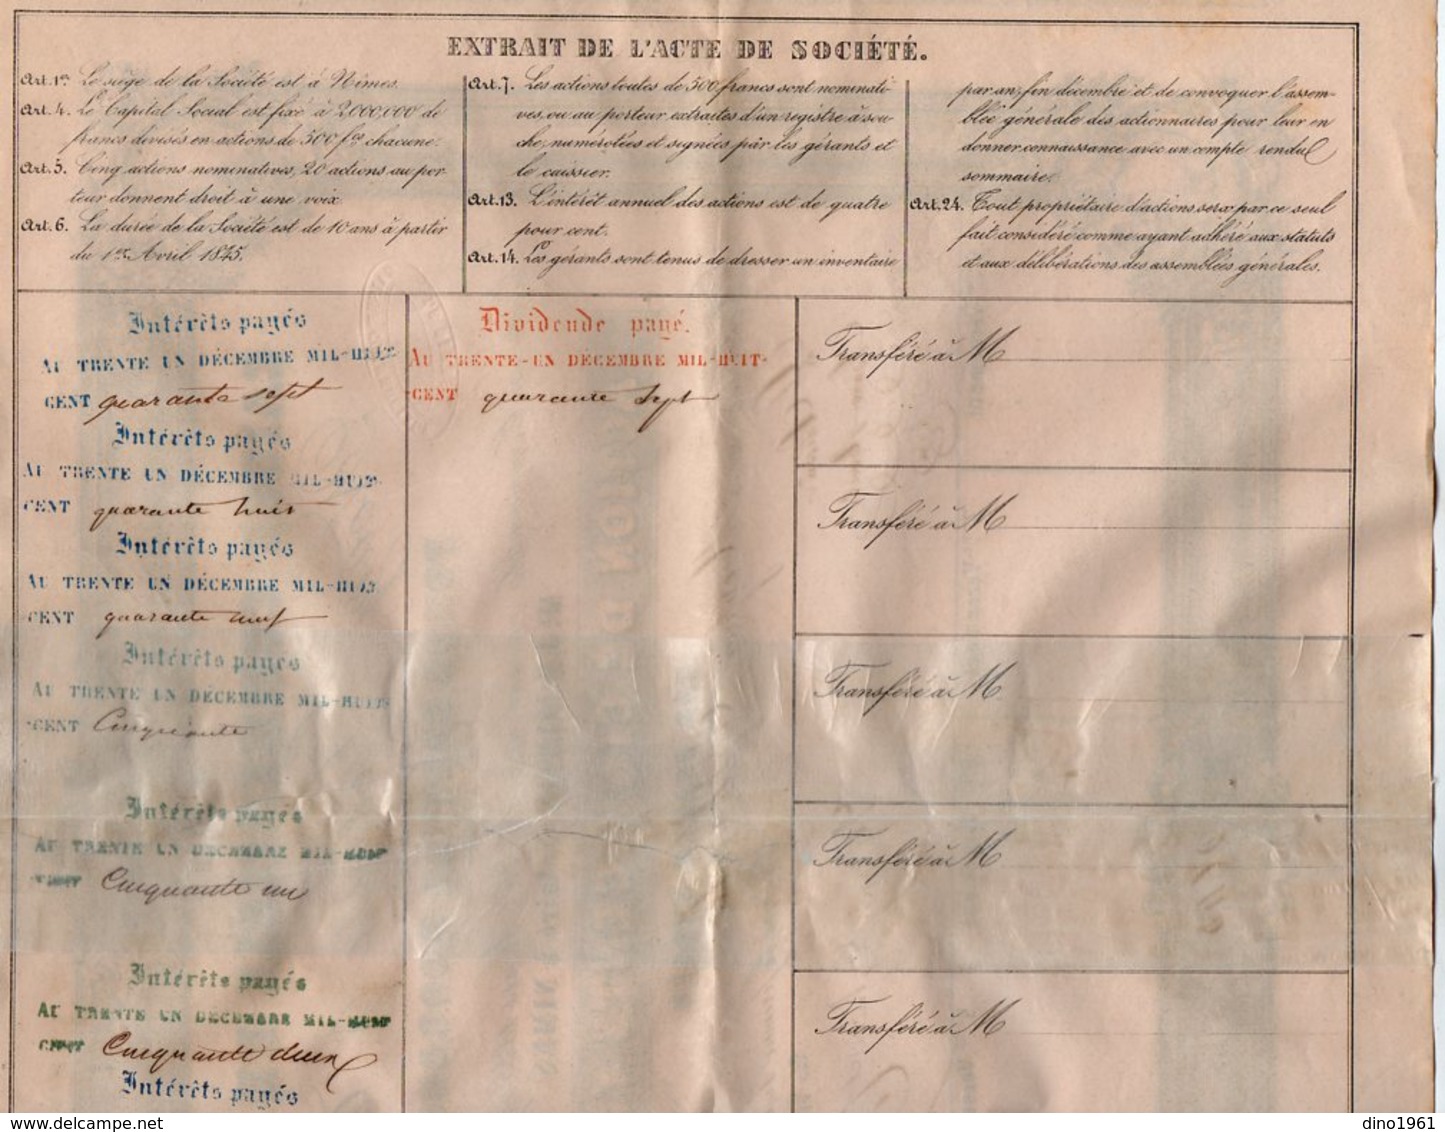 EXTRAIT DE L'ACTE DE SOCIÉTÉ.
Art. 1er Le siège de la Société est à Nîmes.
Art. 4. Le Capital Social est fixé à 2,000,000 de
francs divisés en actions de 500 fcs chacune.
Art. 5. Cinq actions nominatives, 20 actions au por-
teur donnent droit à une voix
Art. 6. La durée de la Société est de 10 ans à partir
du 1er Avril 1845.
Art. 7. Les actions toutes de 500 francs sont nominati-
ves, ou au porteur extraites d'un registre à sou-
che, numérotées et signées par les gérants et
le caissier.
Art. 13. L'intérêt annuel des actions est de quatre
pour cent.
Art. 14. Les gérants sont tenus de dresser un inventaire
par an, fin décembre et de convoquer l'assem-
blée générale des actionnaires pour leur en
donner connaissance avec un compte rendu
sommaire.
Art. 24. Tout propriétaire d'actions sera par ce seul
fait considéré comme ayant adhéré aux statuts
et aux délibérations des assemblées générales.
Intérêts payés
AU TRENTE UN DÉCEMBRE MIL-HUIT-
CENT quarante sept
Intérêts payés
AU TRENTE UN DÉCEMBRE MIL-HUIT-
CENT quarante huit
Intérêts payés
AU TRENTE UN DÉCEMBRE MIL-HUIT
CENT quarante neuf
Intérêts payés
AU TRENTE UN DÉCEMBRE MIL-HUIT-
CENT Cinquante
Intérêts payés
AU TRENTE UN DÉCEMBRE MIL-HUIT
CENT Cinquante un
Intérêts payés
AU TRENTE UN DÉCEMBRE MIL-HUIT
CENT Cinquante deux
Intérêts payés
Dividende payé.
AU TRENTE-UN DÉCEMBRE MIL-HUIT-
CENT quarante sept
Transféré à M
Transféré à M
Transféré à M
Transféré à M
Transféré à M
dino1961